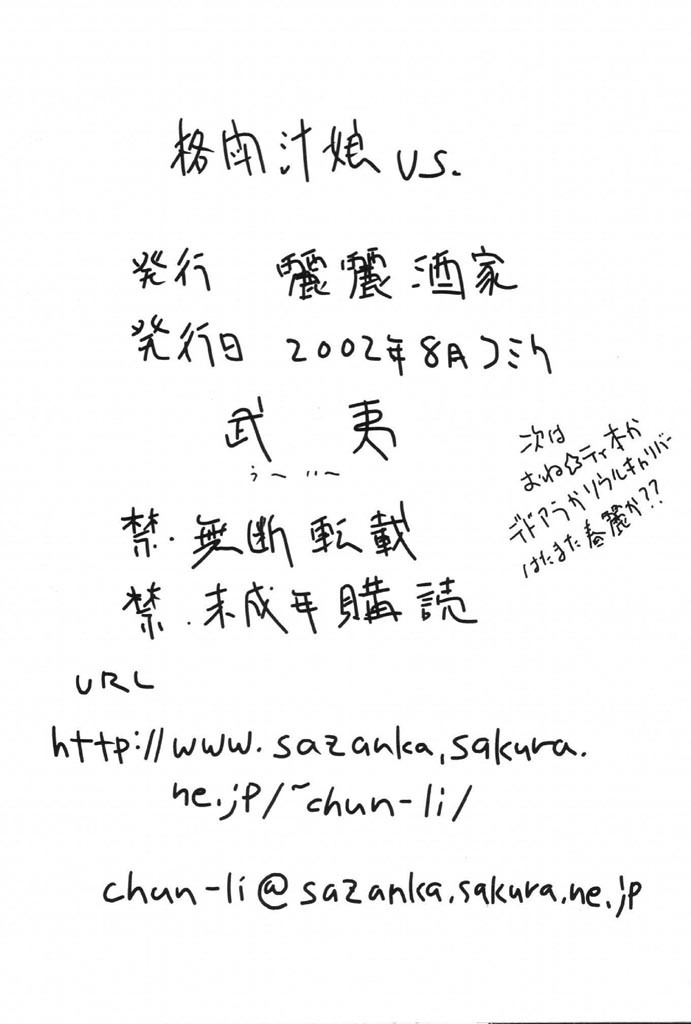 格肉汁娘 vs.
発行 麗麗酒家
発行日 2002年8月コミケ
武 夷
うー いー
次は
おね☆ティ本か
デドアラかソウルキャリバー
はたまた春麗か??
禁・無断転載
禁・未成年購読
URL
http://www.sazanka.sakura.
ne.jp/~chun-li/
chun-li@sazanka.sakura.ne.jp